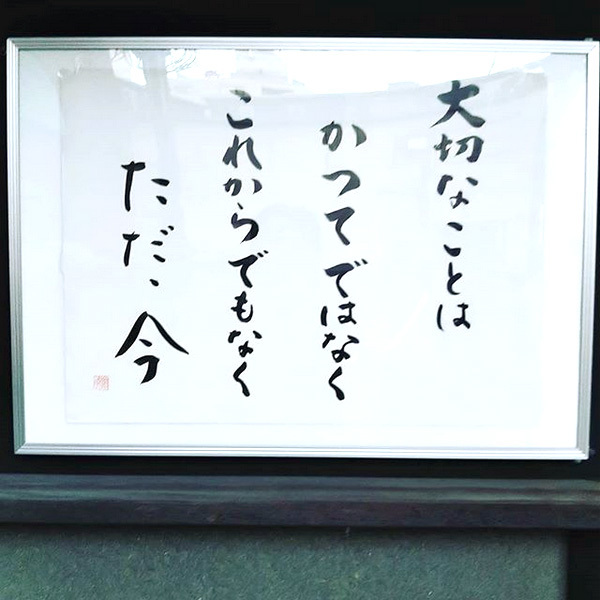 大切なことは
かつてではなく
これからでもなく
ただ、今